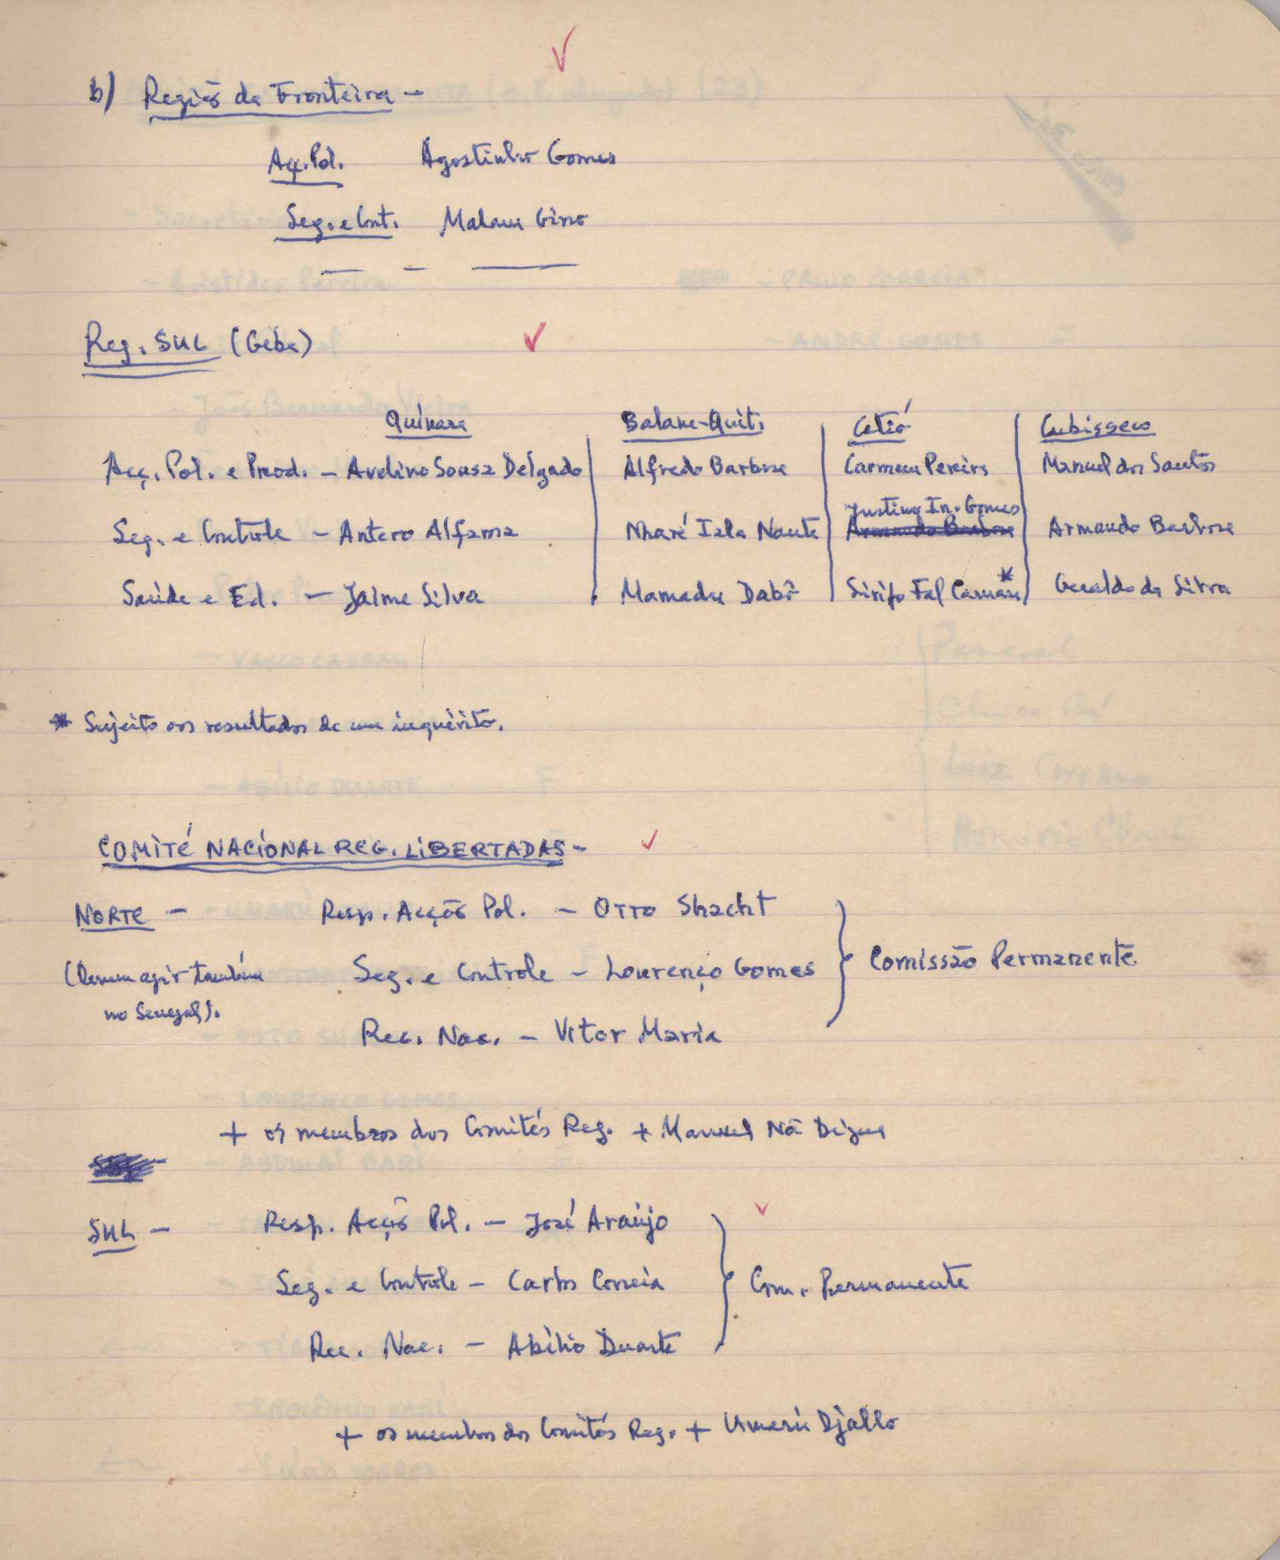 b) Região da Fronteira -
Aç. Pol. Agostinho Gomes
Seg. e Cont. Malam
Reg. SUL (Geba)
Quínara Balana-Quit. Catió Cubisseco
Acç. Pol. e Prod. - Avelino Sousa Delgado Alfredo Barbosa Carmen Pereira Manuel dos Santos
Justino In. Gomes
Seg. e Controle - Antero Alfama Nharé Iala Armando Barbosa Armando Barbosa
Saúde e Ed. - Jaime Silva Mamadu Dabó Sirifo Fal Camará* Geraldo da Silva
* Sujeito aos resultados de um inquérito.
COMITÉ NACIONAL REG. LIBERTADAS -
NORTE - Resp. Acção Pol. - Otto Shacht
(Devem agir também Seg. e Controle - Lourenço Gomes Comissão Permanente
no Senegal).
Rec. Nac. - Vitor Maria
+ os membros dos Comités Reg. + Manuel Nã Digna
SUL - Resp. Acção Pol. - José Araújo
Seg. e Controle - Carlos Correia Com. Permanente
Rec. Nac. - Abílio Duarte
+ os membros dos Comités Reg. + Umarú Djallo